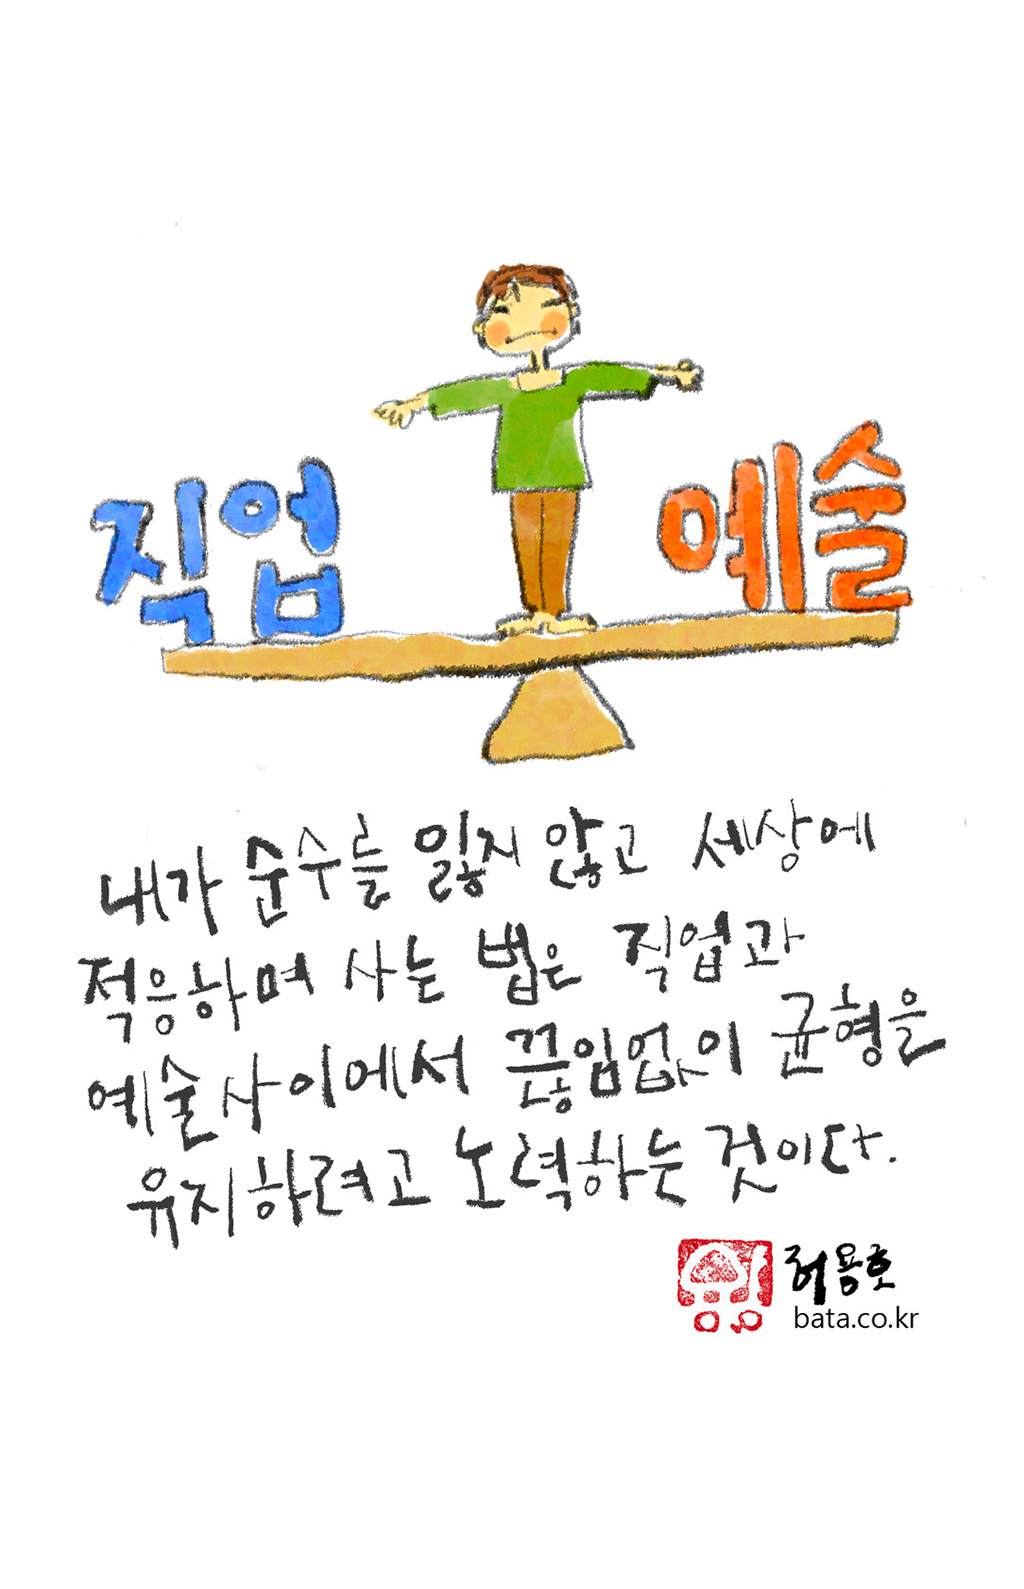 직업
예술
내가 순수를 잃지 않고 세상에
적응하며 사는 법은 직업과
예술사이에서 끊임없이 균형을
유지하려고 노력하는 것이다.
허용호
bata.co.kr